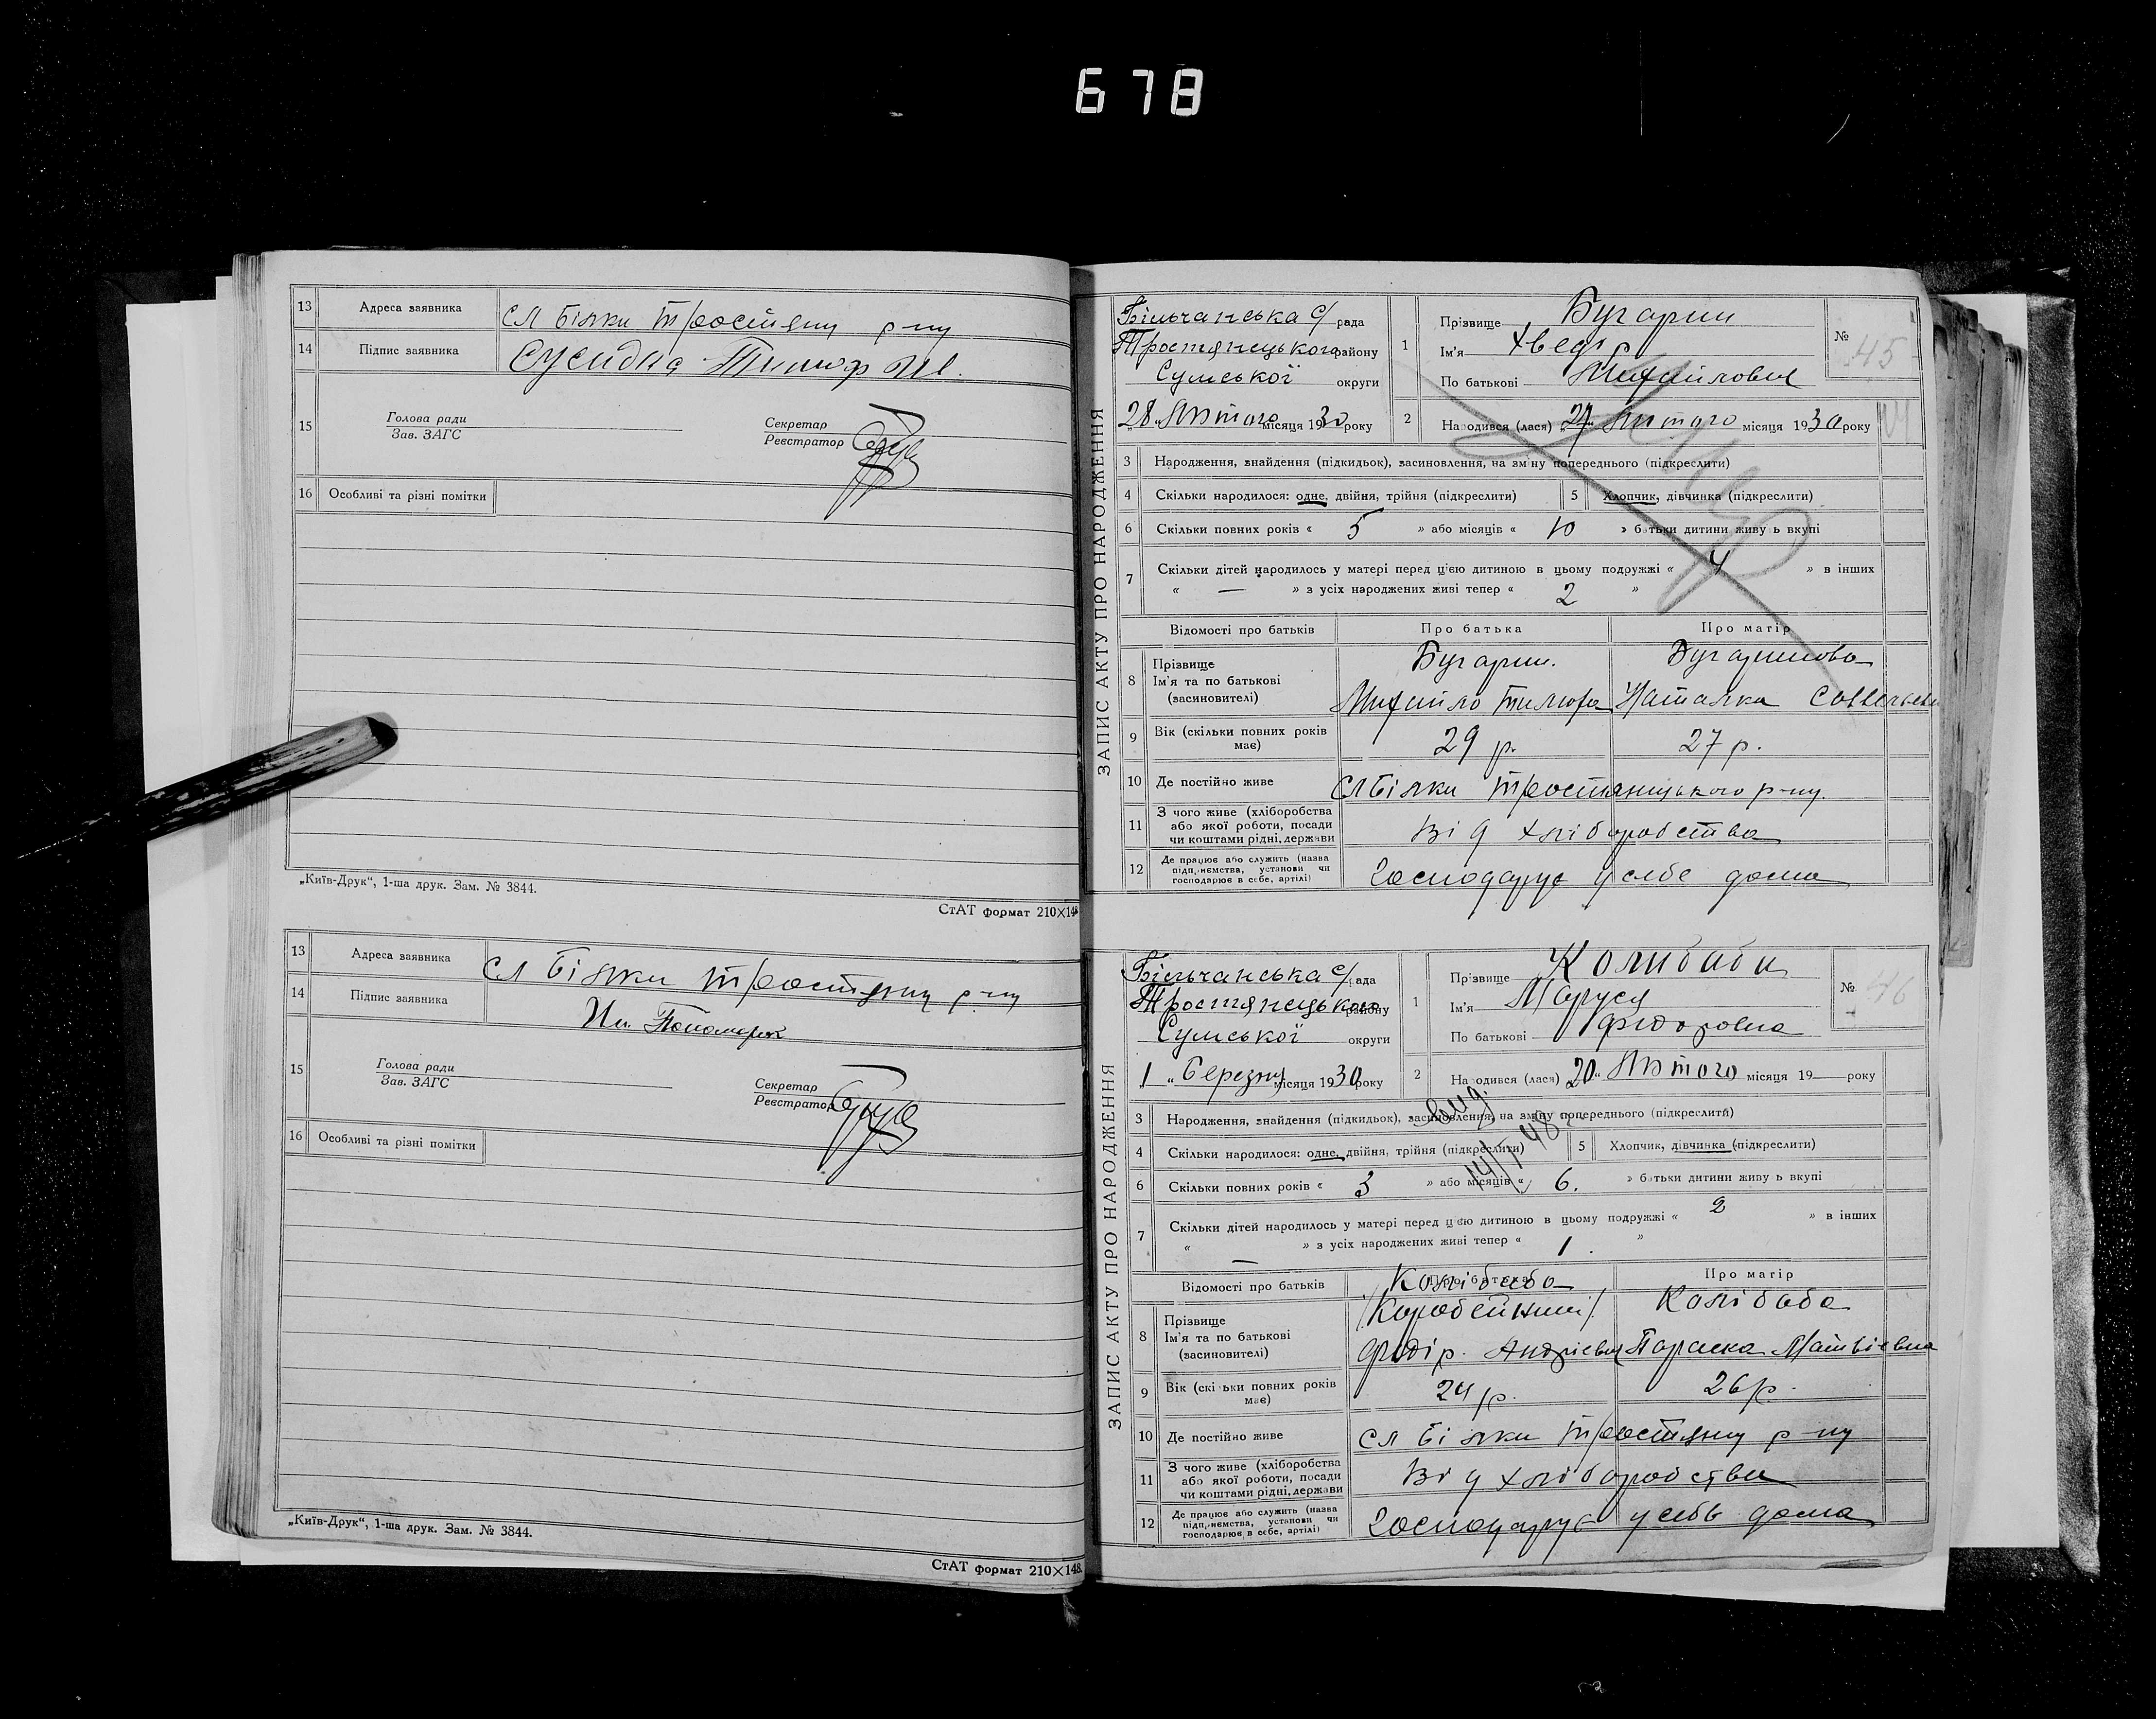 678
13 Адреса заявника сл Білки Тростянц р-ну
14 Підпис заявника Тимоф Ив.
15 Голова ради
Зав. ЗАГС
Секретар
Реєстратор
16 Особливі та різні помітки
„Київ-Друк“, 1-ша друк. Зам. № 3844.
СтАТ формат 210×148
13 Адреса заявника сл Білки Тростянц р-ну
14 Підпис заявника Ив. Пономарж
15 Голова ради
Зав. ЗАГС
Секретар
Реєстратор
16 Особливі та різні помітки
„Київ-Друк“, 1-ша друк. Зам. № 3844.
СтАТ формат 210×148.
ЗАПИС АКТУ ПРО НАРОДЖЕННЯ
Більчанська с/рада
Тростянецького району
Сумської округи
„28„ Лютого місяця 1930 року
1 Прізвище Бугарин
Ім'я Хведір
По батькові Михайлович
№ 45
2 Народився (лася) „27„ Лютого місяця 1930 року
3 Народження, знайдення (підкидьок), засиновлення, на зміну попереднього (підкреслити)
4 Скільки народилося: одне, двійня, трійня (підкреслити) 5 Хлопчик, дівчинка (підкреслити)
6 Скільки повних років « 5 » або місяців « 10 » батьки дитини живуть вкупі
7 Скільки дітей народилось у матері перед цією дитиною в цьому подружжі « 4 » в інших
« — » з усіх народжених живі тепер « 2 »
Умер
Відомості про батьків Про батька Про матір
8 Прізвище Бугарин. Бугаринова
Ім'я та по батькові
(засиновителі) Михайло Тимофа Наталка
9 Вік (скільки повних років має) 29 р. 27 р.
10 Де постійно живе сл Білки Тростянецького р-ну.
11 З чого живе (хліборобства
або якої роботи, посади
чи коштами рідні, держави Від хліборобства
12 Де працює або служить (назва
підприємства, установи чи
господарює в себе, артілі) Господарує у себе дома
ЗАПИС АКТУ ПРО НАРОДЖЕННЯ
Більчанська с/рада
Тростянецького району
Сумської округи
1 „ Березня місяця 1930 року
1 Прізвище Колибаба
Ім'я Маруся
По батькові Федоровна
№ 46
2 Народився (лася) 20„ Лютого місяця 19— року
3 Народження, знайдення (підкидьок), засиновлення, на зміну попереднього (підкреслити)
4 Скільки народилося: одне, двійня, трійня (підкреслити) 5 Хлопчик, дівчинка (підкреслити)
6 Скільки повних років « 3 » або місяців « 6. » батьки дитини живуть вкупі
7 Скільки дітей народилось у матері перед цією дитиною в цьому подружжі « 2 » в інших
« — » з усіх народжених живі тепер « 1. »
Відомості про батьків Про батька Про матір
Колібаба
8 Прізвище /Коробейник/ Колібаба
Ім'я та по батькові
(засиновителі) Федір. Андрієвич Параска Матвієвна
9 Вік (скільки повних років має) 24 р. 26 р.
10 Де постійно живе сл Білки Тростянц р-ну
11 З чого живе (хліборобства
або якої роботи, посади
чи коштами рідні, держави Від хліборобства
12 Де працює або служить (назва
підприємства, установи чи
господарює в себе, артілі) Господарує у себе дома